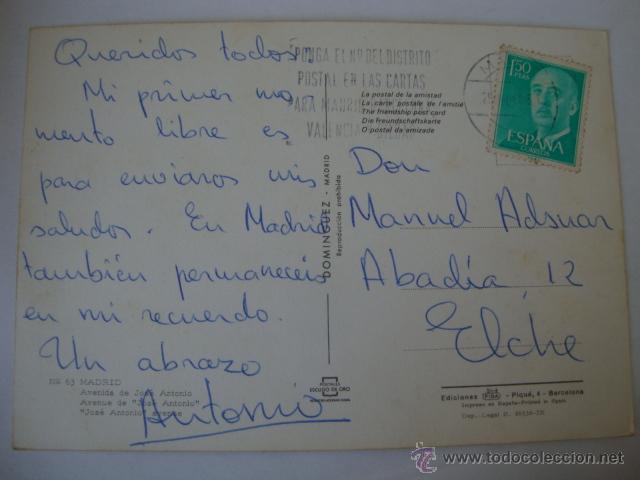 Queridos todos:
Mi primer mo
mento libre es
para enviaros mis
saludos. En Madrid
también permaneceis
en mi recuerdo.
Un abrazo
Antonio
PONGA EL Nº DEL DISTRITO
POSTAL EN LAS CARTAS
PARA MADRID
La postal de la amistad
La carte postale de l'amitié
The friendship post card
Die Freundschaftskarte
O postal da amizade
1,50
PTAS
ESPAÑA
CORREOS
Don
Manuel Adsuar
Abadía, 12
Elche
DOMINGUEZ - MADRID
Reproducción prohibida
Nº 63 MADRID
Avenida de José Antonio
Avenue de "José Antonio"
"José Antonio" avenue
POSTALES
ESCUDO DE ORO
Ediciones FISA - Piqué, 4 - Barcelona
Impreso en España-Printed in Spain
Dep. Legal B.
www.todocoleccion.net